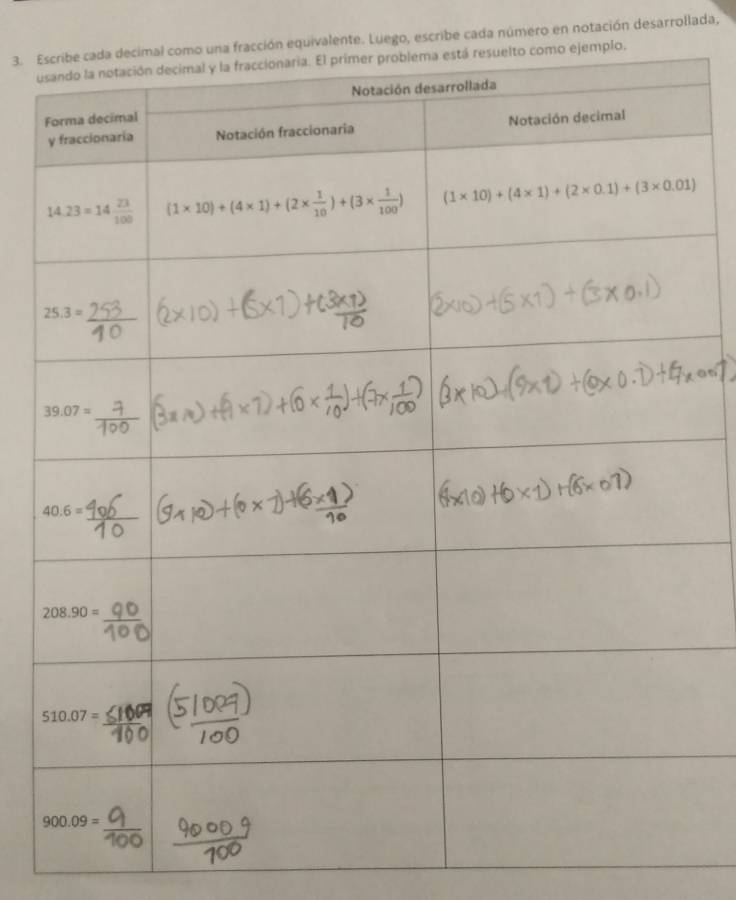 3. Escribe cada decimal como una fracción equivalente. Luego, escribe cada número en notación desarrollada,
usando la notación decimal y la fraccionaria. El primer problema está resuelto como ejemplo.
Notación desarrollada
Forma decimal
y fraccionaria
Notación fraccionaria
Notación decimal
14.23 = 14 23/100
(1 × 10) + (4 × 1) + (2 × 1/10) + (3 × 1/100)
(1 × 10) + (4 × 1) + (2 × 0.1) + (3 × 0.01)
25.3 = 253/10
(2×10) + (5×1) + (3×1)/10
(2×10) + (5×1) + (3×0.1)
39.07 = 7/100
(3×10) + (9×1) + (0×1/10) + (7×1/100)
(3×10) + (9×1) + (0×0.1) + (7×001)
40.6 = 406/10
(4×10) + (0×1) + (6×1)/10
(4×10) + (0×1) + (6×01)
208.90 = 90/100
510.07 = 51007/100
(51007/100)
900.09 = 9/100
90009/100